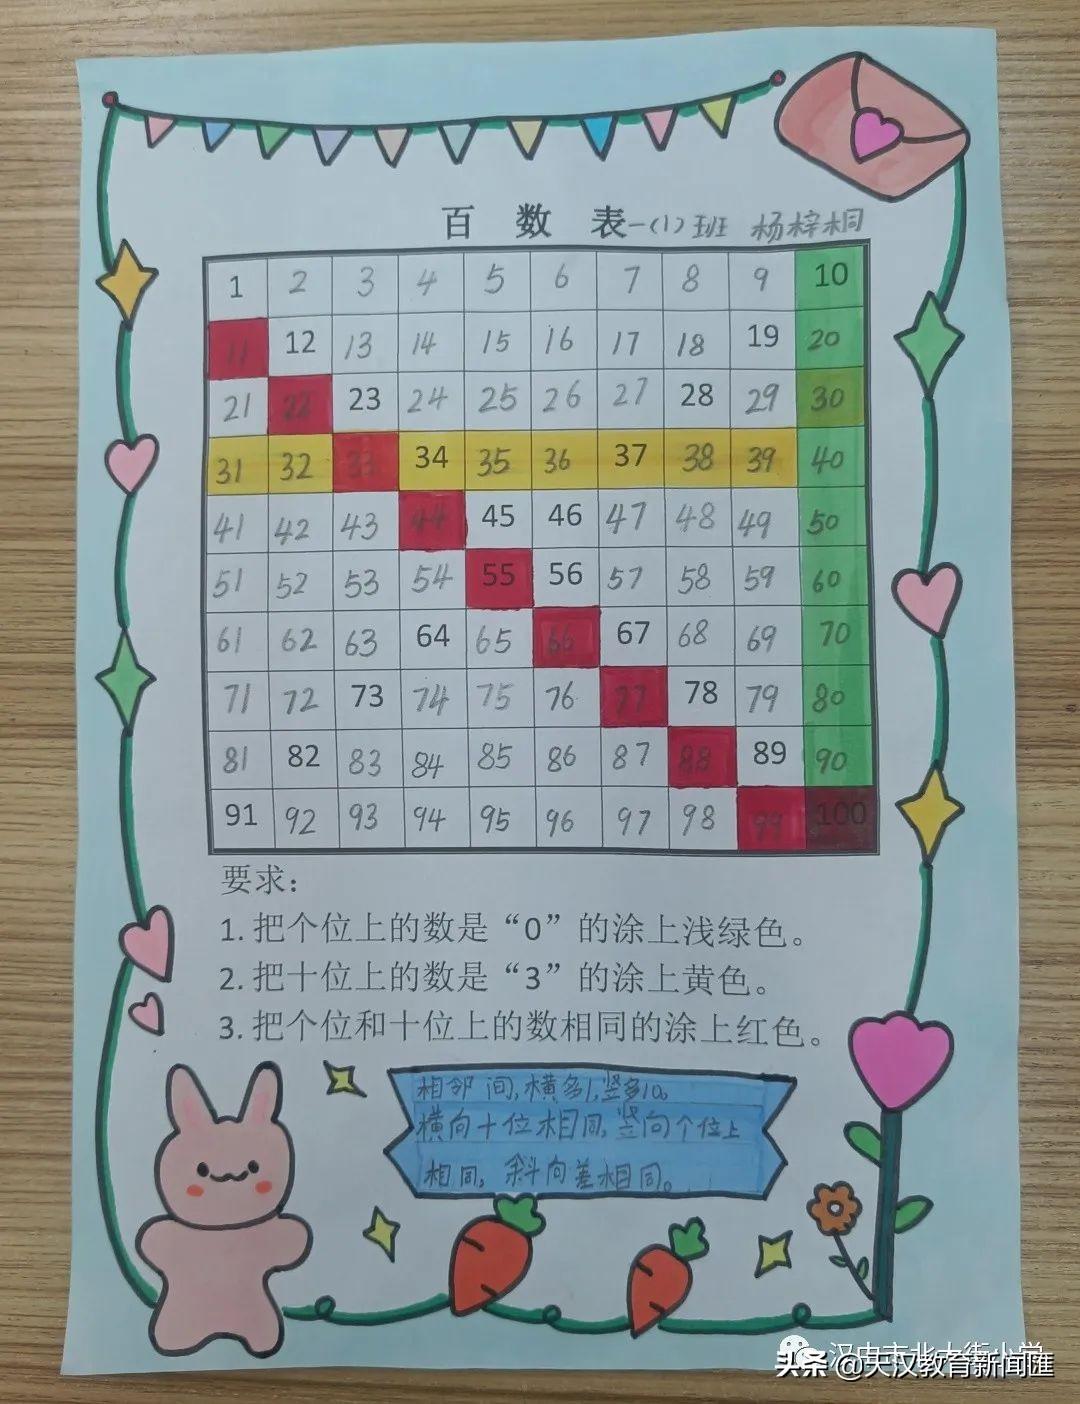 百 数 表 一(1)班 杨梓桐
1 2 3 4 5 6 7 8 9 10
11 12 13 14 15 16 17 18 19 20
21 22 23 24 25 26 27 28 29 30
31 32 33 34 35 36 37 38 39 40
41 42 43 44 45 46 47 48 49 50
51 52 53 54 55 56 57 58 59 60
61 62 63 64 65 66 67 68 69 70
71 72 73 74 75 76 77 78 79 80
81 82 83 84 85 86 87 88 89 90
91 92 93 94 95 96 97 98 99 100
要求:
1. 把个位上的数是“0”的涂上浅绿色。
2. 把十位上的数是“3”的涂上黄色。
3. 把个位和十位上的数相同的涂上红色。
相邻间,横多1,竖多10。
横向十位相同,竖向个位上
相同,斜向差相同。
汉中市北大街小学
头条 @天汉教育新闻匯